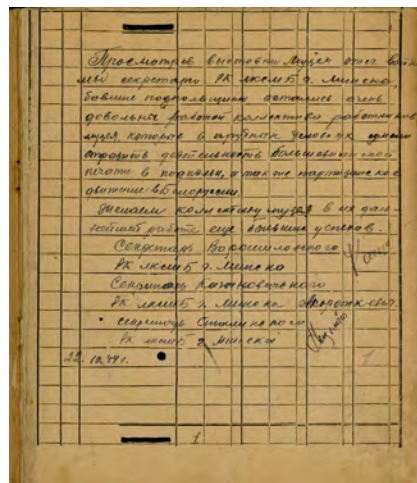 Просмотрев выставки музея отеч. войны
мы секретари РК лксмБ г. Минска,
бывшие подпольщики остались очень
довольны работой коллектива работников
музея, которые в трудных условиях сумели
отразить деятельность большевистской
печати в подпольи, а также партизанское
движение в Белоруссии.
Желаем коллективу музея в их даль-
нейшей работе еще больших успехов.
Секретарь Ворошиловского
РК лксмБ г. Минска
Секретарь Кагановичского
РК лксмБ г. Минска
секретарь Сталинского
РК лксмБ г. Минска
22. 10.44 г.